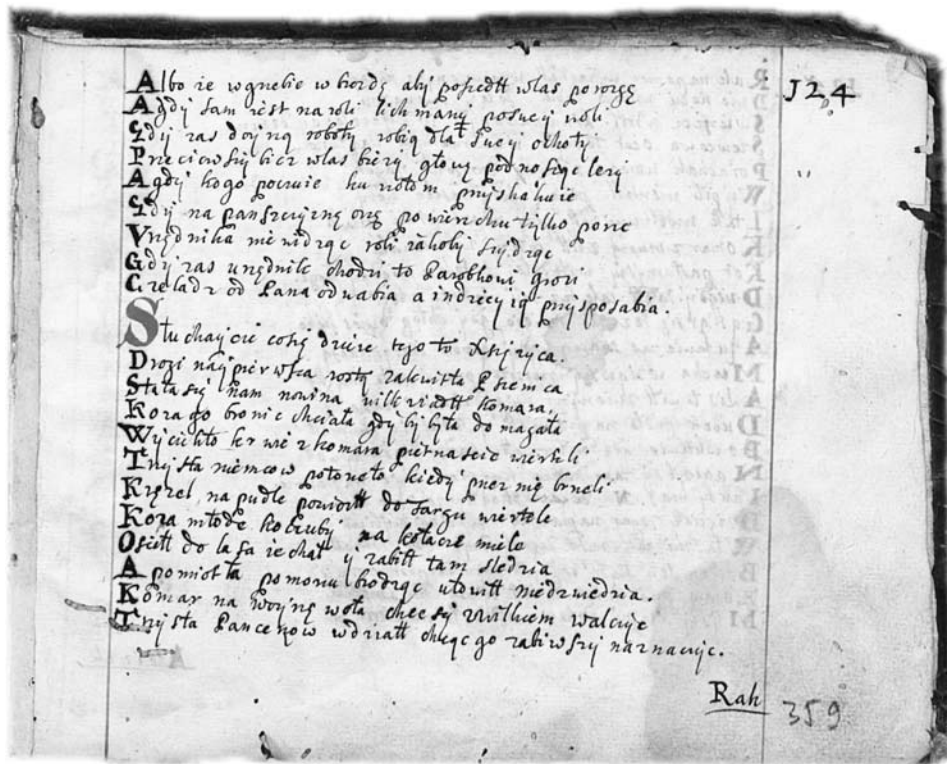 Albo ie wgnebie w brodę aby poszedł wlas po rozgę
A gdy sam iest na roli lichmany posucy woli
Gdy zas do iną roboty robią dla Pucy ochoty
Przeciwszy kier wlas bierą głowy podnosząc leżą
A gdy kogo poczuie ku wołom przyskakuie
Gdy na panszczyznę orę po wierzchu tylko porze
Vrzędnika nie widząc roli zakoly szydząc
Gdy zas urzędnik chodzi to Parobkowi grozi
Czeladz od Pana odwabia a indziey ią przysposabia.
Słuchaycie cosię dzieie tego to Xsiężyca.
Drogi naypierwsza rostą zakwitła Psienica
Stała się nam nowina wilk ziadł komara,
Koza go bronic chciała gdy by była do magała
Wyciekło krwie z komara piętnascie wierteli
Trzysta niemcow potoneło kiedy przez nię brneli
Kisiel, na pudle powiozł do targu wiertele
Koza młode kobzuby na kołacze miele
Osiełł do lasa iechał y zabiłł tam sledzia
A pomiotła po morzu brodząc ułowiłł niedzwiedzia.
Komar na woynę woła chce się z wilkiem walczyc
Trzysta Pancerzow wdziałł chcąc go zabiwszy narznaczyc.
Rak
124
359